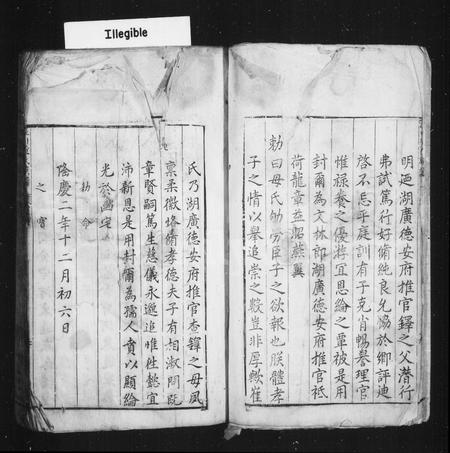 Illegible
明廼湖廣德安府推官鐸之父潛行
弗試篤行好脩純良允協於鄉評迪
啓不忘乎庭訓有子克肖暢譽理官
惟祿養之優將宜恩綸之覃被是用
封爾為文林郎湖廣德安府推官祗
荷龍章益貽燕翼
勅曰母氏劬勞臣子之欲報也朕體孝
子之情以舉追崇之數豈非厚歟崔
氏乃湖廣德安府推官查鐸之母夙
稟柔徽恪脩孝德夫子有相淑問既
章賢嗣篤生慈儀永邈追惟往懿宜
沛新恩是用封爾為孺人賁以顯綸
光於幽宅
勅命
隆慶二年十二月初六日
之寶